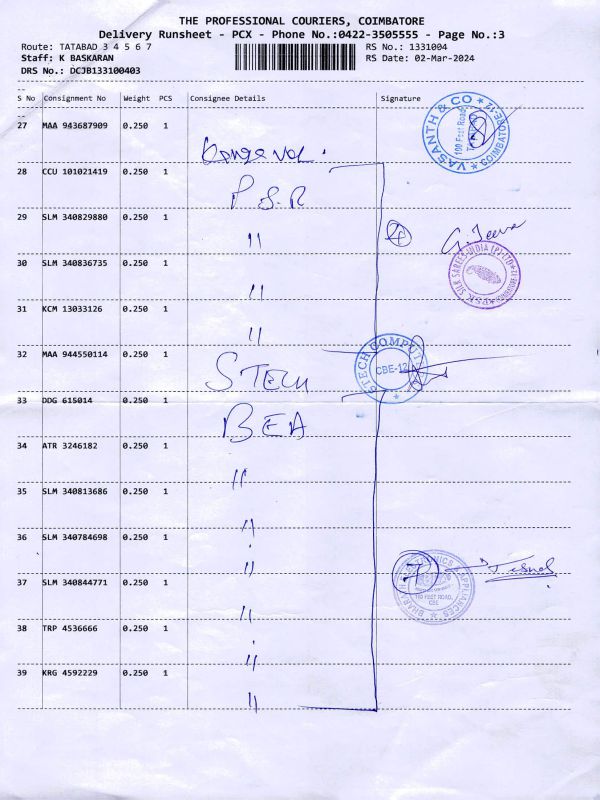 THE PROFESSIONAL COURIERS, COIMBATORE
Delivery Runsheet - PCX - Phone No.:0422-3505555 - Page No.:3
Route: TATABAD 3 4 5 6 7 RS No.: 1331004
Staff: K BASKARAN RS Date: 02-Mar-2024
DRS No.: DCJB133100403
S No Consignment No Weight PCS Consignee Details Signature
27 MAA 943687909 0.250 1
VASANTH & CO
100 Feet Road
COIMBATORE-12
28 CCU 101021419 0.250 1 P S R
29 SLM 340829880 0.250 1 " 4 G. Jeeva
30 SLM 340836735 0.250 1 "
PSR SILK SAREES INDIA (P) LTD
31 KCM 13033126 0.250 1 "
32 MAA 944550114 0.250 1 STECH
STECH COMPUT
CBE-12
33 DDG 615014 0.250 1 BEA
34 ATR 3246182 0.250 1 "
35 SLM 340813686 0.250 1 "
36 SLM 340784698 0.250 1 "
7
& APPLIANCES
100 FEET ROAD,
CBE
37 SLM 340844771 0.250 1 "
38 TRP 4536666 0.250 1 "
39 KRG 4592229 0.250 1 "